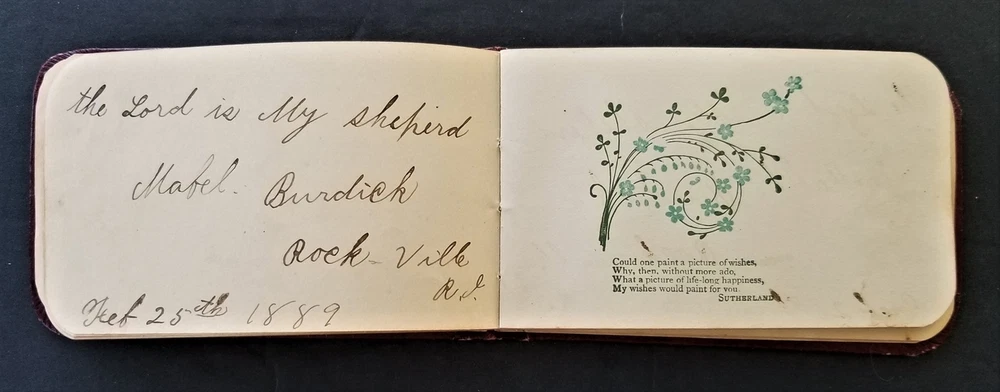 the Lord is My sheperd
Mabel. Burdick
Rock-Ville
R.I.
Feb 25th 1889
Could one paint a picture of wishes,
Why, then, without more ado,
What a picture of life-long happiness,
My wishes would paint for you
SUTHERLAND